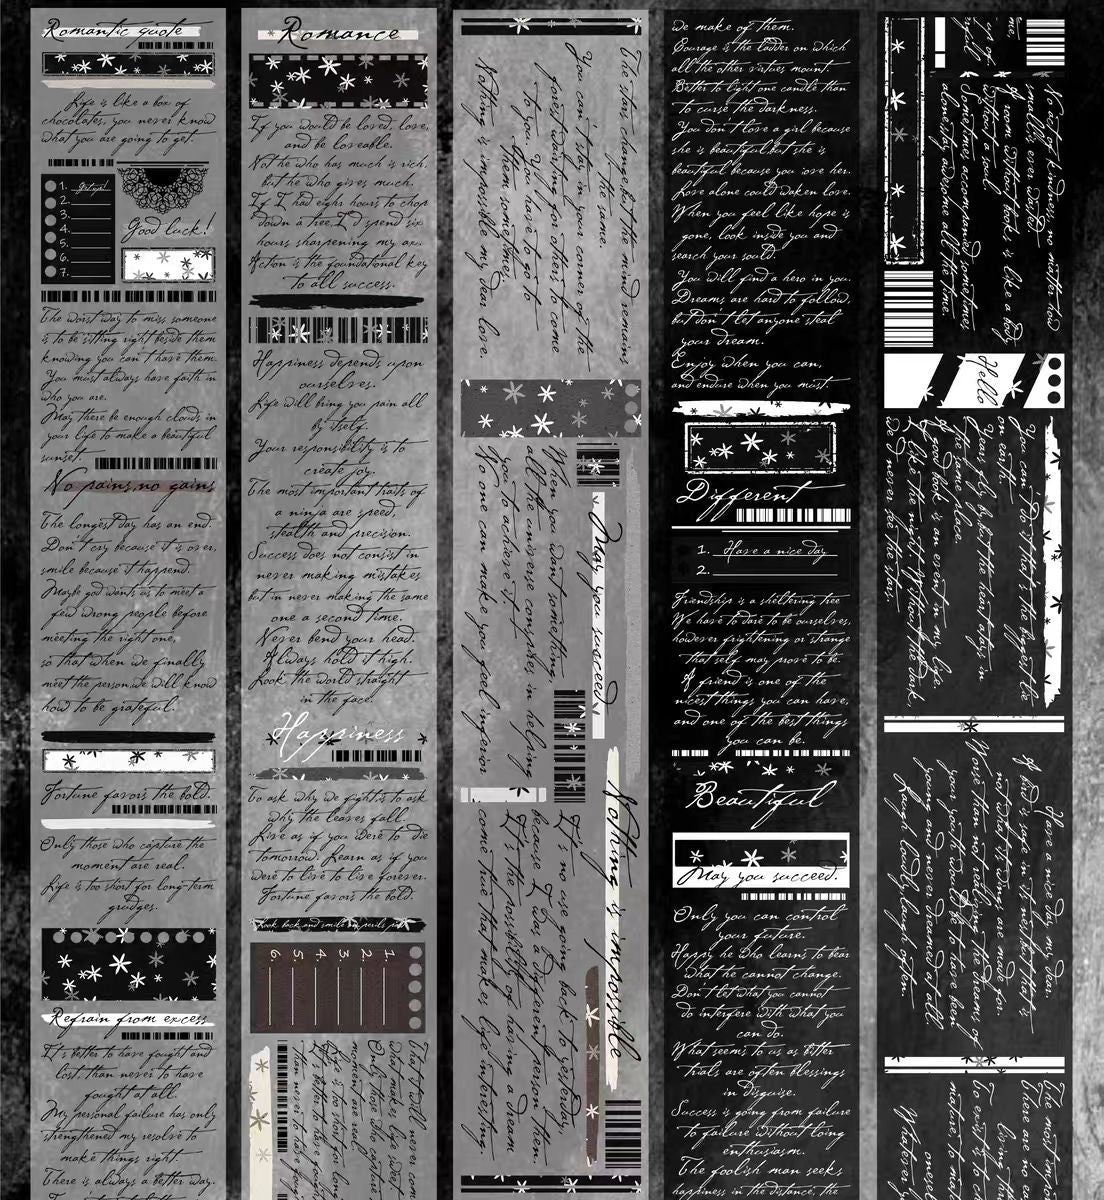 Romantic quote
Life is like a box of
chocolates, you never know
what you are going to get.
1.
2.
3.
4.
5.
6.
7.
Good luck!
The worst way to miss someone
is to be sitting right beside them
knowing you can't have them.
You must always have faith in
who you are.
May there be enough clouds in
your life to make a beautiful
sunset.
No pains,no gains
The longest day has an end.
Don't cry because it is over,
smile because it happend.
Maybe god wants us to meet a
few wrong people before
meeting the right one,
so that when we finally
meet the person,we will know
how to be grateful.
Fortune favors the bold.
Only those who capture the
moment are real.
Life is too short for long-term
grudges.
Refrain from excess
It's better to have fought and
lost, than never to have
fought at all.
My personal failure has only
strengthened my resolve to
make things right.
There is always a better way.
Romance
If you would be loved, love,
and be loveable.
Not he who has much is rich,
but he who gives much.
If I had eight hours to chop
down a tree,I'd spend six
hours sharpening my ax.
Action is the foundational key
to all success.
Happiness depends upon
ourselves.
Life will bring you pain all
by itself.
Your responsibility is to
create joy.
The most important traits of
a ninja are speed,
stealth and precision.
Success does not consist in
never making mistakes
but in never making the same
one a second time.
Never bend your head.
Always hold it high.
Look the world straight
in the face.
Happiness
To ask why we fight,is to ask
why the leaves fall.
Live as if you were to die
tomorrow. Learn as if you
were to live to live forever.
Fortune favors the bold.
Look back and smile on perils past
1
2
3
4
5.
6.
That I will never come
that makes life sweet.
Only those who capture the
moment are real.
Life is too short for long
It's better to have fought
than never to have
The stars change,but the mind remains
the same.
You can't stay in your corner of the
forest waiting for others to come
to you. You have to go to
them sometimes.
Nothing is impossible my dear love.
May you succeed.
When you want something,
all the universe conspires in helping
you to achieve it.
No one can make you feel inferior
Nothing is impossible
It's no use going back to yesterday,
because I was a different person then.
It's the possibility of having a dream
come true that makes life interesting.
we make of them.
Courage is the ladder on which
all the other virtues mount.
Better to light one candle than
to curse the darkness.
You don't love a girl because
she is beautiful,but she is
beautiful because you love her.
Love alone could waken love.
When you feel like hope is
gone, look inside you and
search your sould.
You will find a hero in you.
Dreams are hard to follow.
but don't let anyone steal
your dream.
Enjoy when you can,
and endure when you must.
Different
1. Have a nice day
2.
Friendship is a sheltering tree
We have to dare to be ourselves,
however frightening or strange
that self may prove to be.
A friend is one of the
nicest things you can have,
and one of the best things
you can be.
Beautiful
May you succeed.
Only you can control
your future.
Happy he who learns to bear
what he cannot change.
Don't let what you cannot
do interfere with what you
can do.
What seems to us as bitter
trials are often blessings
in disguise.
Success is going from failure
to failure without losing
enthusiasm.
The foolish man seeks
happiness in the distance, the
No act of kindness, no matter how
small,is ever wasted.
A room without books is like a body
without a soul.
Sometimes accompanied,sometimes
alone,stay awesome all the time.
Hello
You can do what's the biggest lie
on earth.
Years fly by,but the heart ages in
the same place.
A good book is an event in my life.
I like the night.Without the dark,
we'd never see the stars.
Have a nice day, my dear.
A bird is safe in its nest,but that is
not what its wings are made for.
Worse than not realizing the dreams of
your youth would be to have been
young and never dreamed at all.
Laugh loudly,laugh often.
The most
there are no
living
To exist is to
mature is
onself
Whatever